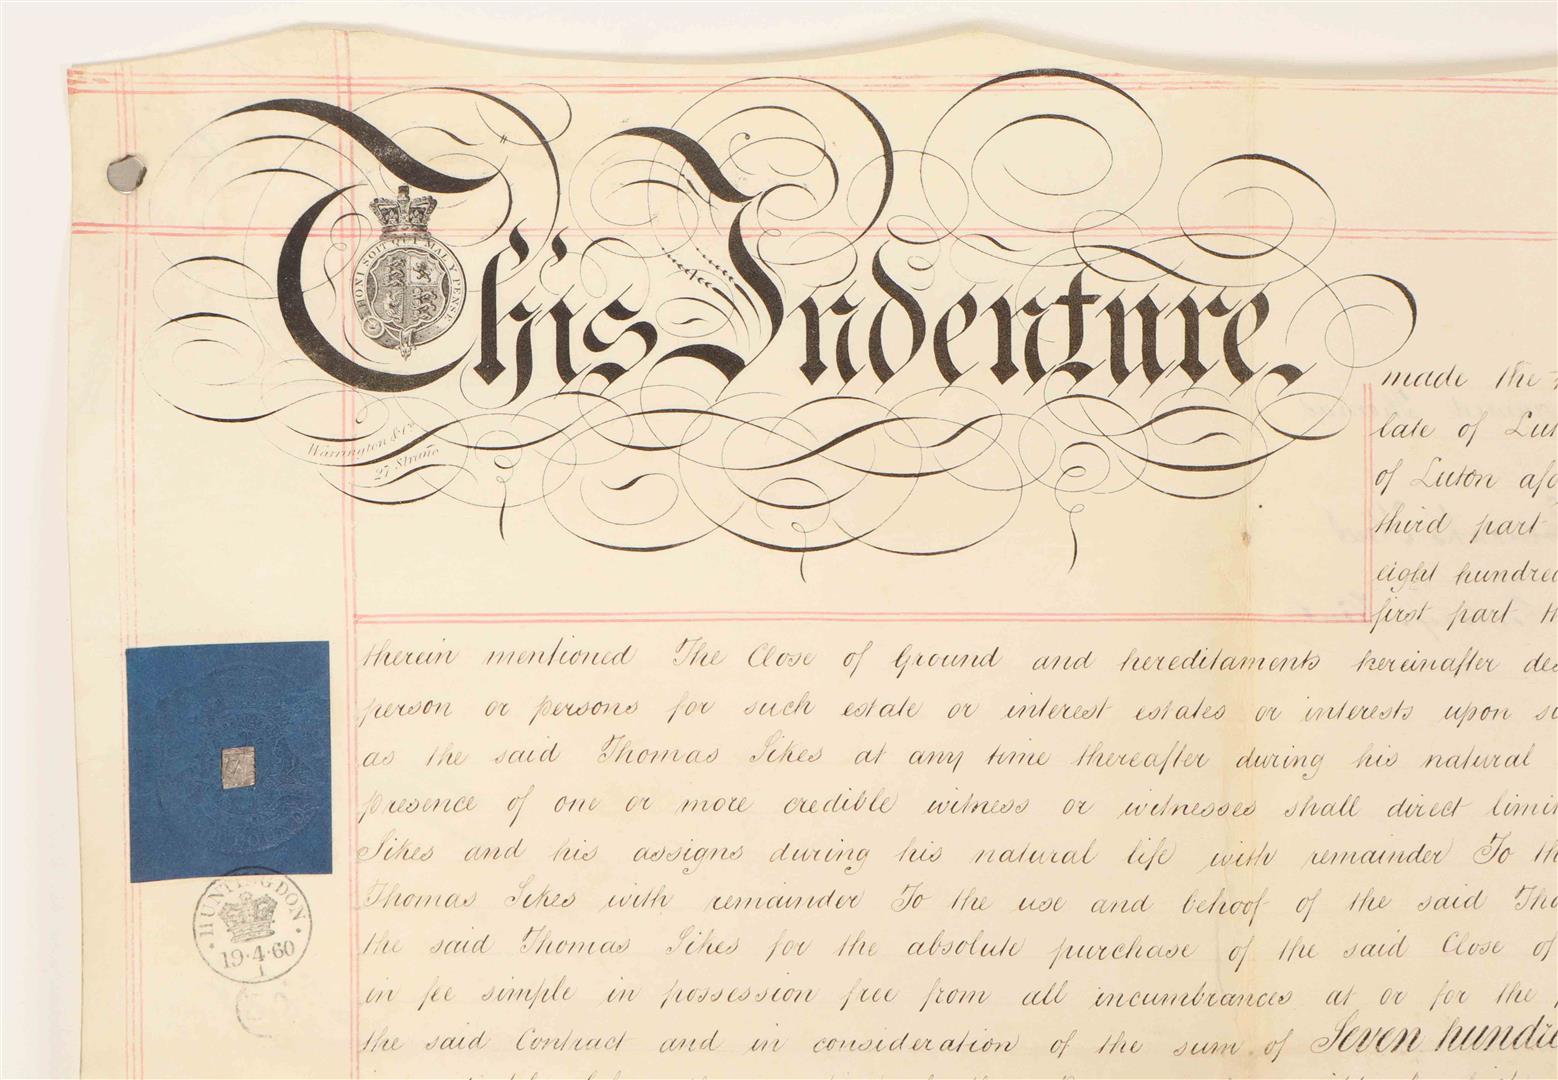 This Indenture
HONI SOIT QUI MAL Y PENSE
Warrington & Co.
27 Strand
made the
late of
of Luton
third part
eight
first part
therein mentioned The Close of Ground and hereditaments hereinafter
person or persons for such estate or interest estates or interests upon
as the said Thomas Sikes at any time thereafter during his natural
presence of one or more credible witness or witnesses shall direct
Sikes and his assigns during his natural life with remainder To
Thomas Sikes with remainder To the use and behoof of the said
the said Thomas Sikes for the absolute purchase of the said Close of
in fee simple in possession free from all incumbrances at or for the
the said Contract and in consideration of the sum of Seven
HUNTINGDON
19·4·60
1